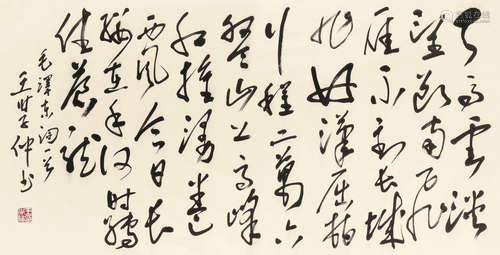 天高雲淡
望断南飞
雁不到长城
非好漢屈指
行程二萬六
盤山上高峰
红旗漫卷
西风今日长
缨在手何时缚
住苍龙
毛澤東词一首
仲书